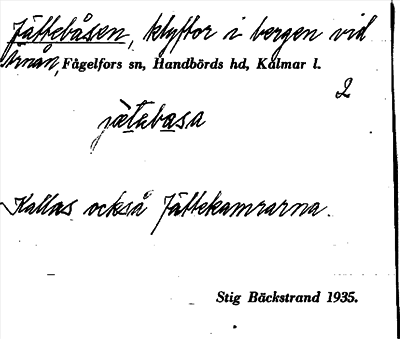 Jättebåsen, klyftor i bergen vid
Fågelfors sn, Handbörds hd, Kalmar l.
2
jätebasa
Kallas också Jättekamrarna.
Stig Bäckstrand 1935.